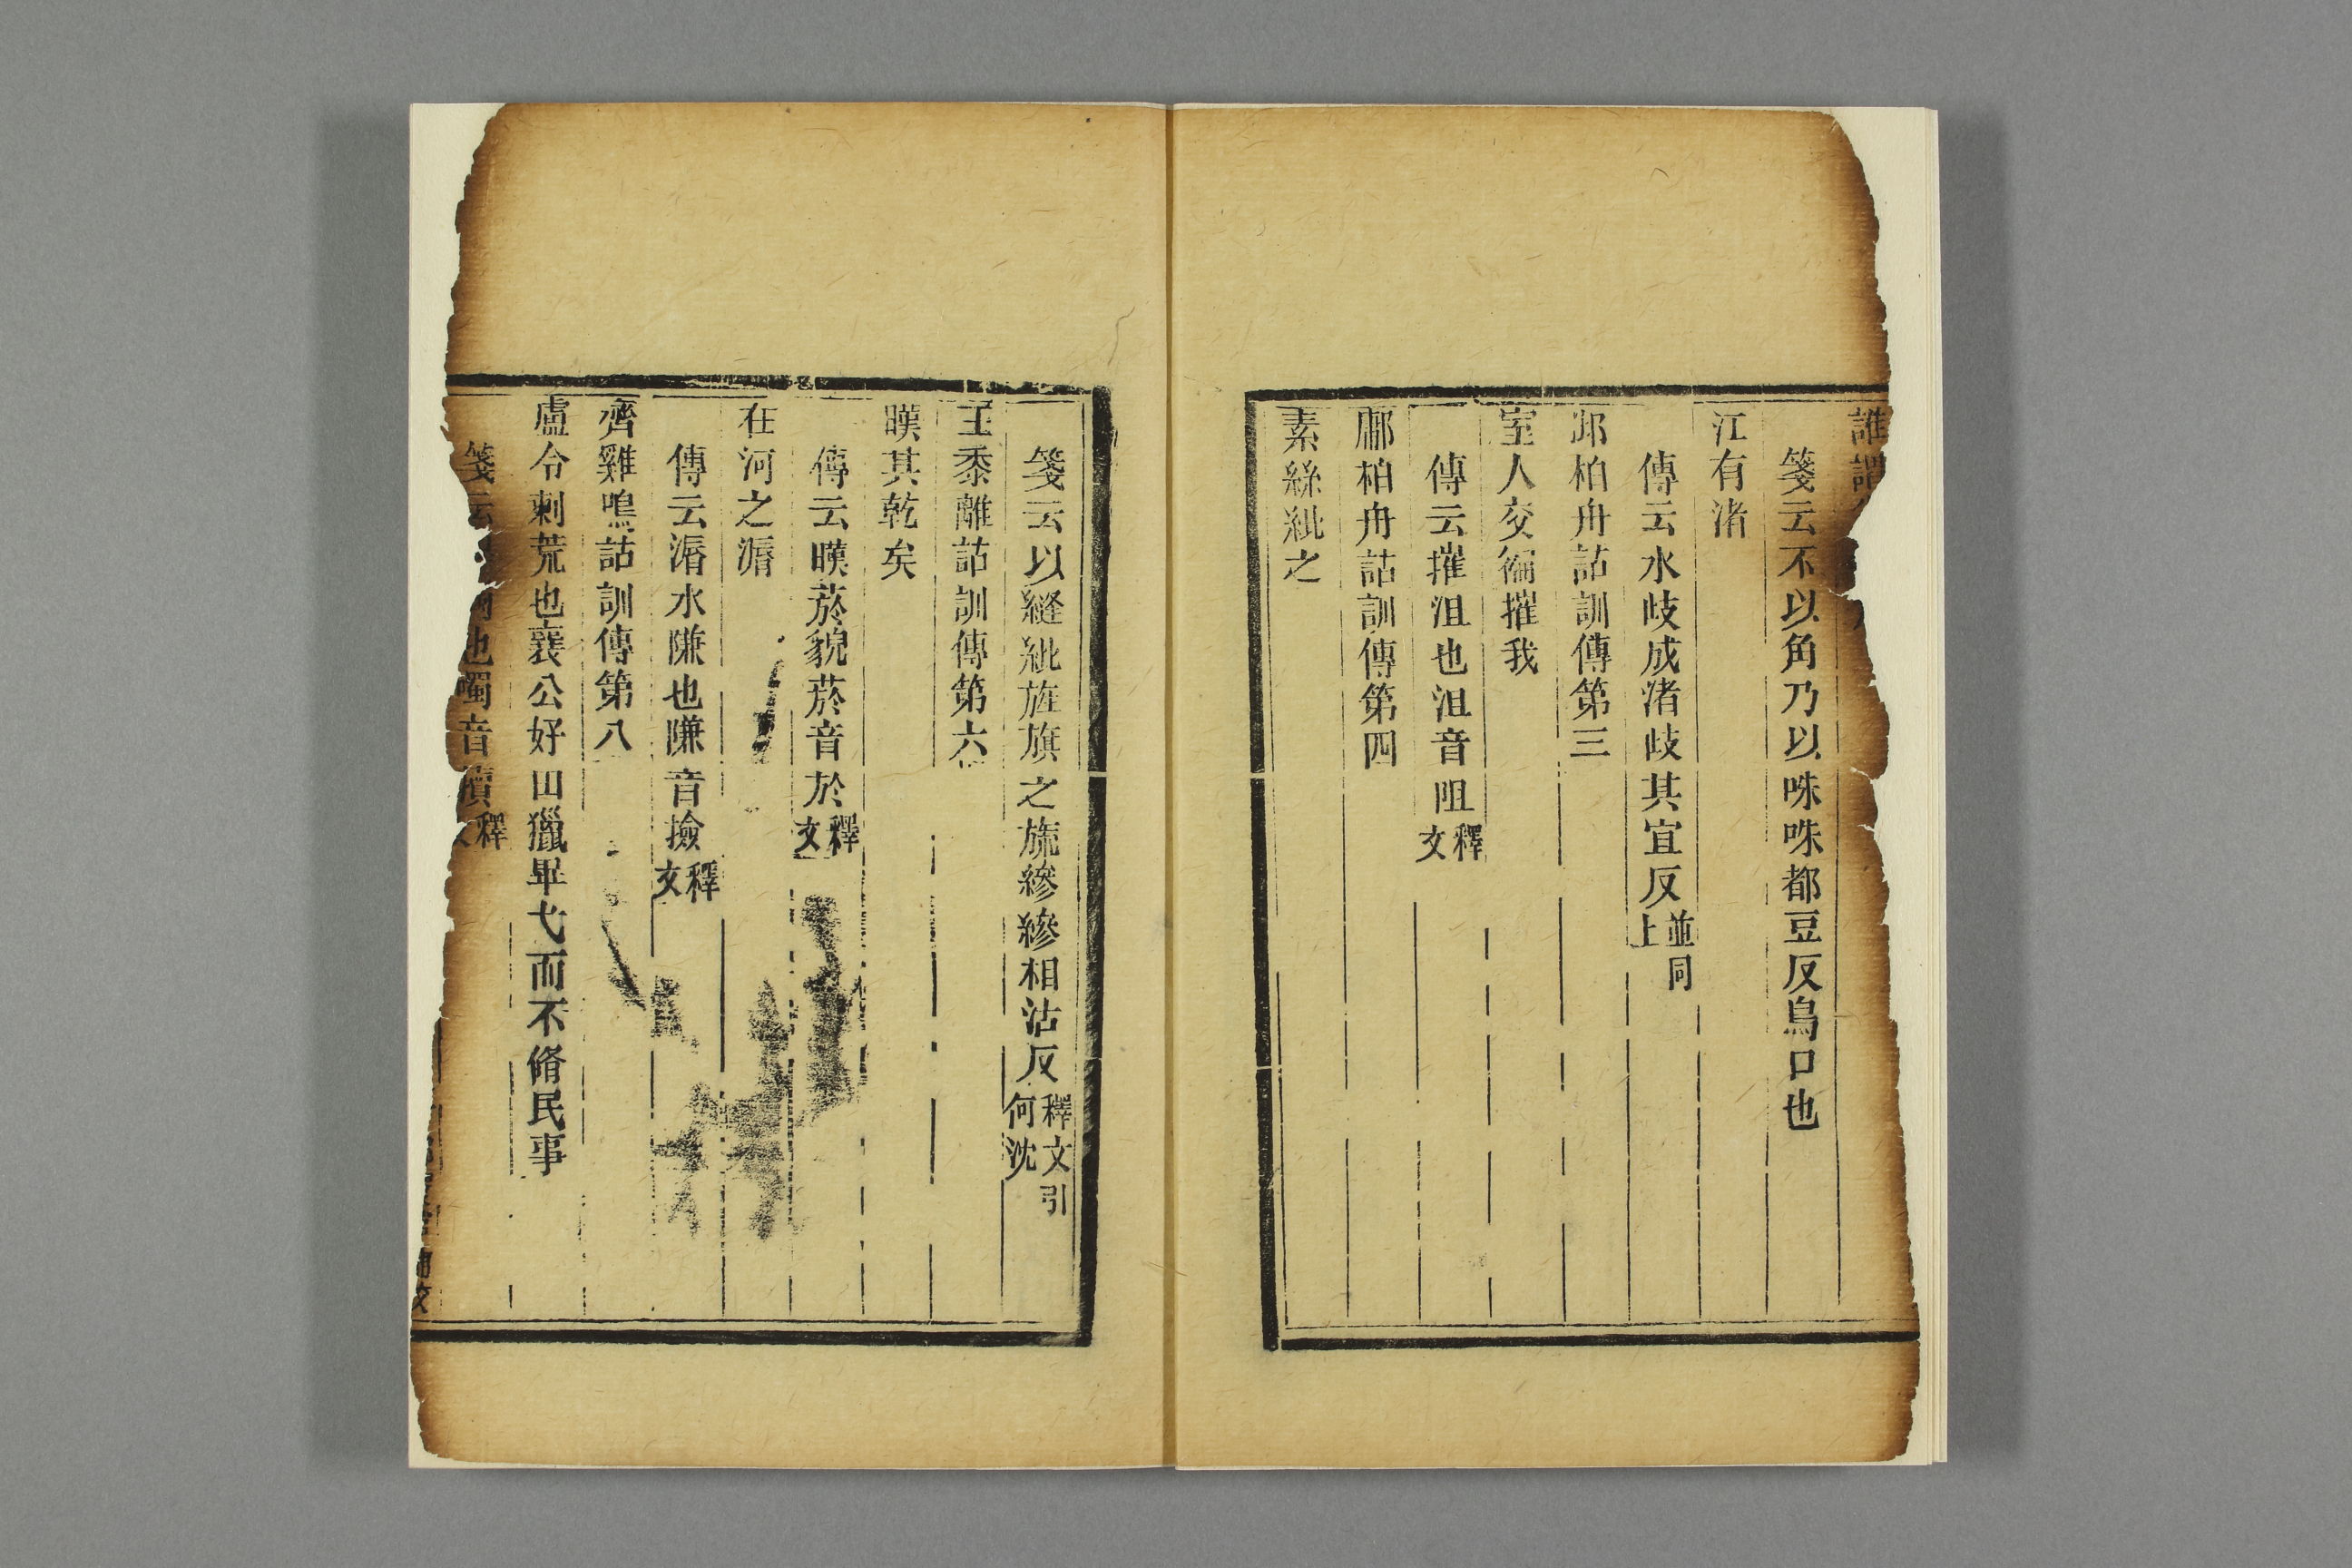 誰謂
箋云不以角乃以咮咮都豆反鳥口也
江有渚
傳云水歧成渚歧其宜反並同上
邶柏舟詁訓傳第三
室人交徧摧我
傳云摧沮也沮音阻釋文
鄘柏舟詁訓傳第四
素絲紕之
箋云以縫紕旌旗之旒縿縿相沾反釋文引何沈
王黍離詁訓傳第六
暵其乾矣
傳云暵菸貌菸音於釋文
在河之漘
傳云漘水隒也隒音撿釋文
齊雞鳴詁訓傳第八
盧令刺荒也襄公好田獵畢弋而不脩民事
箋云也噣音瀆釋文